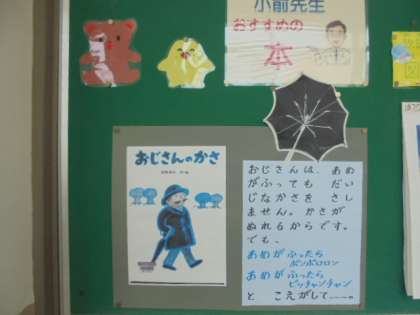 小前先生
おすすめの
本
おじさんのかさ
おじさんは、あめ
がふっても だい
じなかさを さし
ません。かさが
ぬれるからです。
でも、
あめが ふったら
ポンポロロン
あめが ふったら
ピッチャンチャン
と こえがして……。